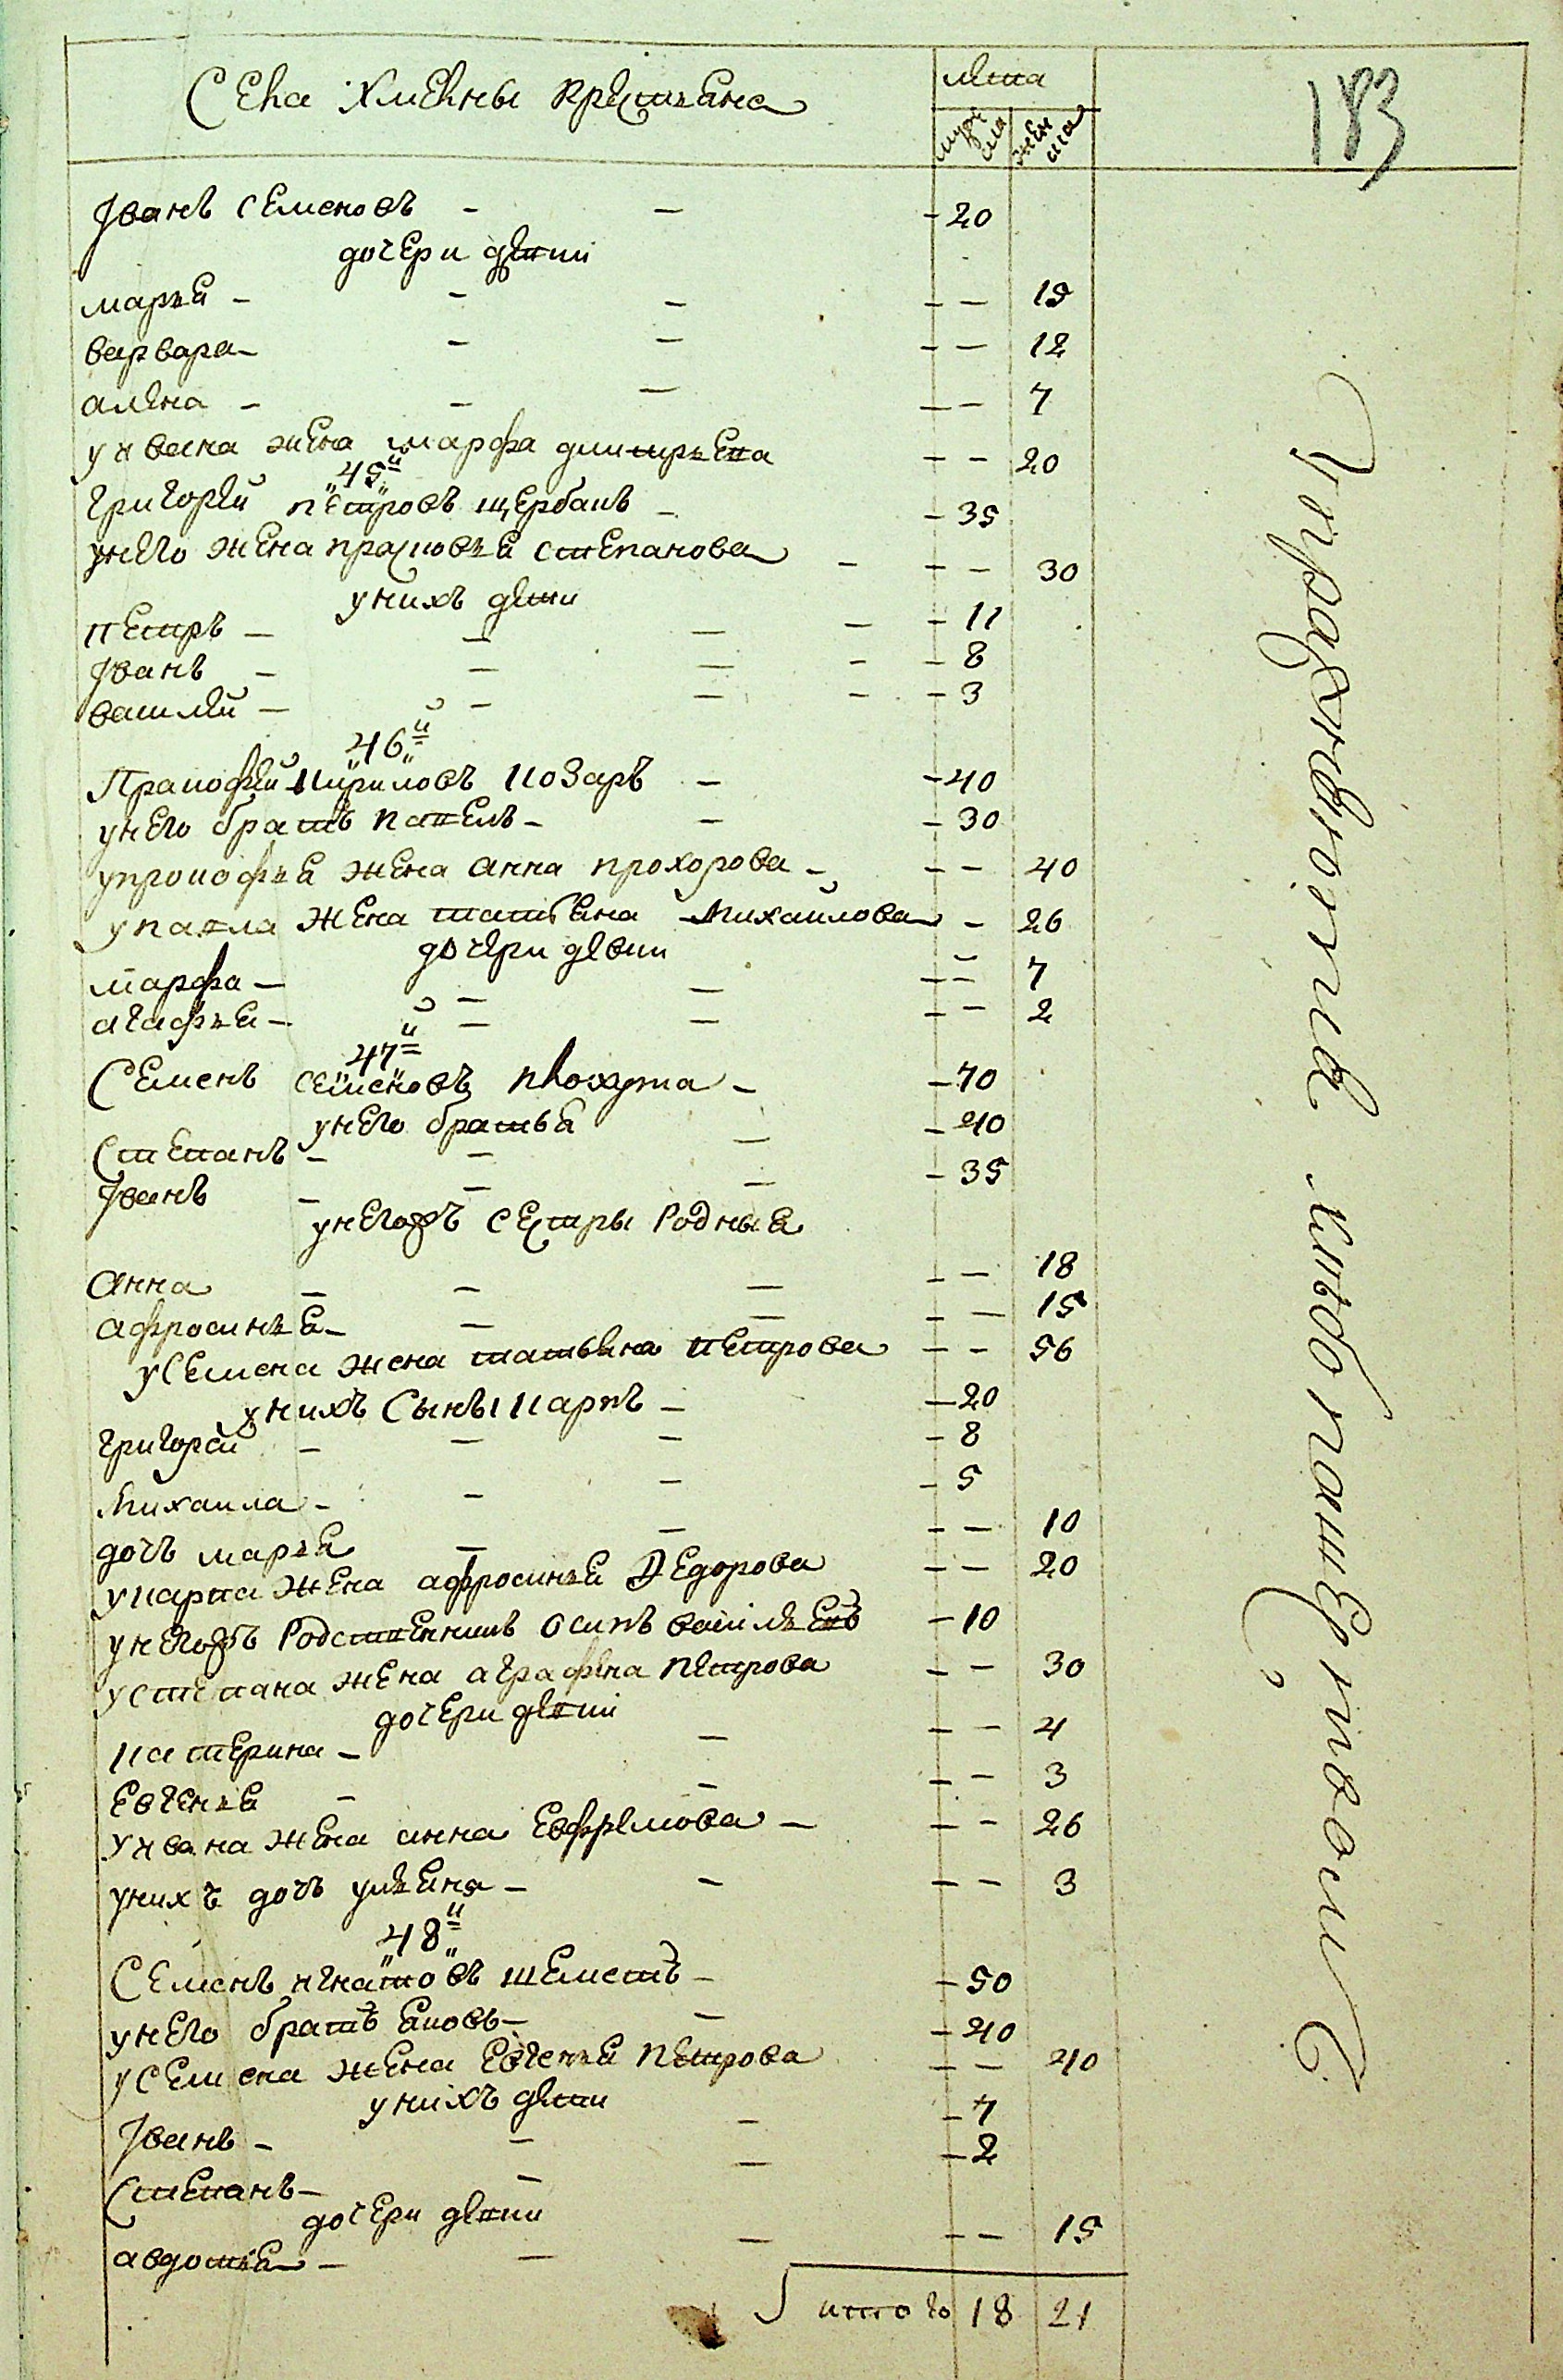 Села Хмелны крестьяна
лета
183
муж
ска
жен
ска
Іванъ Семеновъ - - - 20
дочери девки
марья - - - - - 15
варвара - - - - - 12
алена - - - - - 7
у ивана жена марфа дмитрьева - - 20
„45и„
григорей петровъ щербакъ - - 35
унего жена прасковья степанова - - - 30
унихъ дети
петръ - - - - - 11
Іванъ - - - - - 8
василей - - - - - 3
„46и„
Пракофей кириловъ козаръ - - 40
унего братъ павелъ - - - 30
упрокофья жена анна прохорова - - - 40
упавла жена татьяна михаилова - 26
дочери девки
марфа - - - - - 7
агафья - - - - - 2
„47и„
Семенъ семеновъ плохута - - 70
унего братья
Степанъ - - - - 40
Іванъ - - - - 35
унегожъ сестры родныя
Анна - - - - - 18
афросинья - - - - - 15
уСемена жена татьяна петрова - - 56
унихъ Сынъ карпъ - - 20
григорей - - - - 8
михаила - - - - 5
дочъ марья - - - - 10
укарпа жена афросинья Федорова - - 20
унегожъ родственникъ осипъ васильевъ - 10
устепана жена аграфена петрова - - 30
дочери девки
катерина - - - - 4
Евгенья - - - - 3
уивана жена анна Ефремова - - - 26
унихъ дочъ ульяна - - - - 3
„48и„
Семенъ игнатовъ шеметъ - - 50
унего братъ яковъ - - - 40
усемена жена Евгенья петрова - - 40
унихъ дети
Іванъ - - - - 7
Степанъ - - - - 2
дочери девки
авдотья - - - - - 15
итого 18 21
Упражняются хлебопашеством